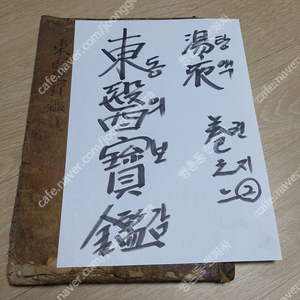 東동醫의寶보鑑감
湯탕液액
卷권之지二②
cafe.naver.com/joonggonara